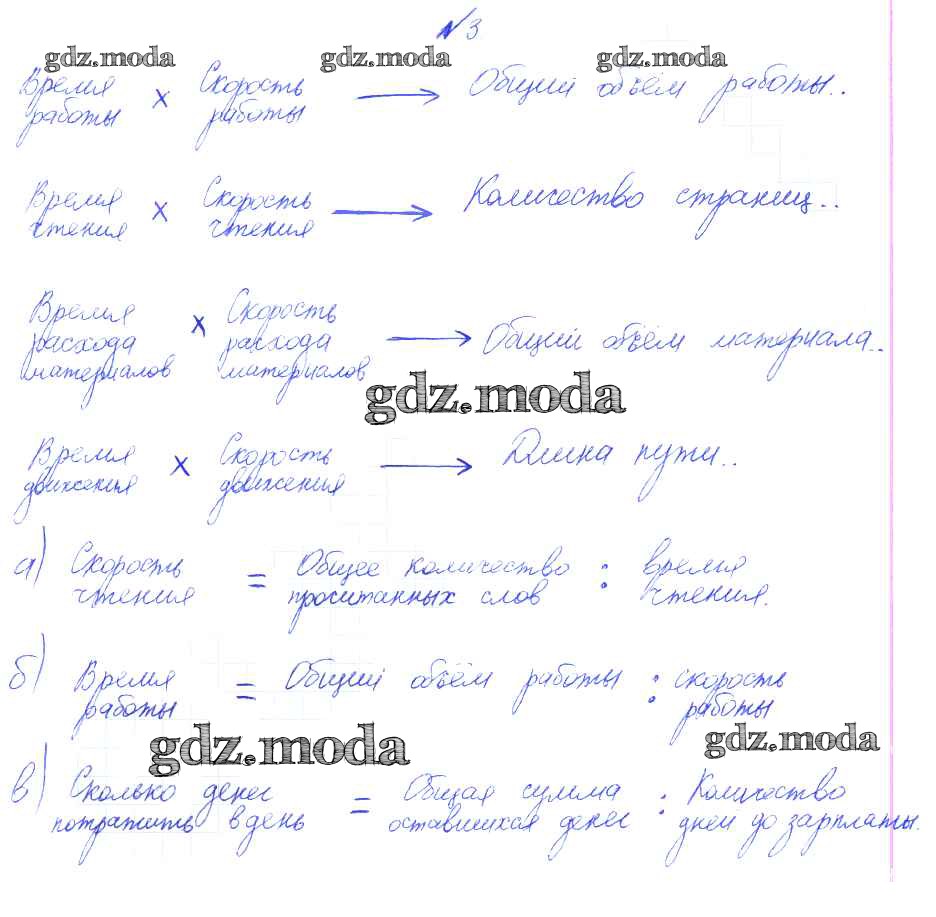 №3
gdz.moda gdz.moda gdz.moda
Время Скорость Общий объём работы..
работы × работы →
Время Скорость Количество страниц..
чтения × чтения →
Время Скорость
расхода × расхода → Общий объём материала..
материалов материалов
gdz.moda
Время × Скорость → Длина пути..
движения движения
а) Скорость = Общее количество : время
чтения просчитанных слов чтения.
б) Время = Общий объём работы : скорость
работы работы
gdz.moda gdz.moda
в) Сколько денег = Общая сумма : Количество
потратить в день оставшихся денег дней до зарплаты.